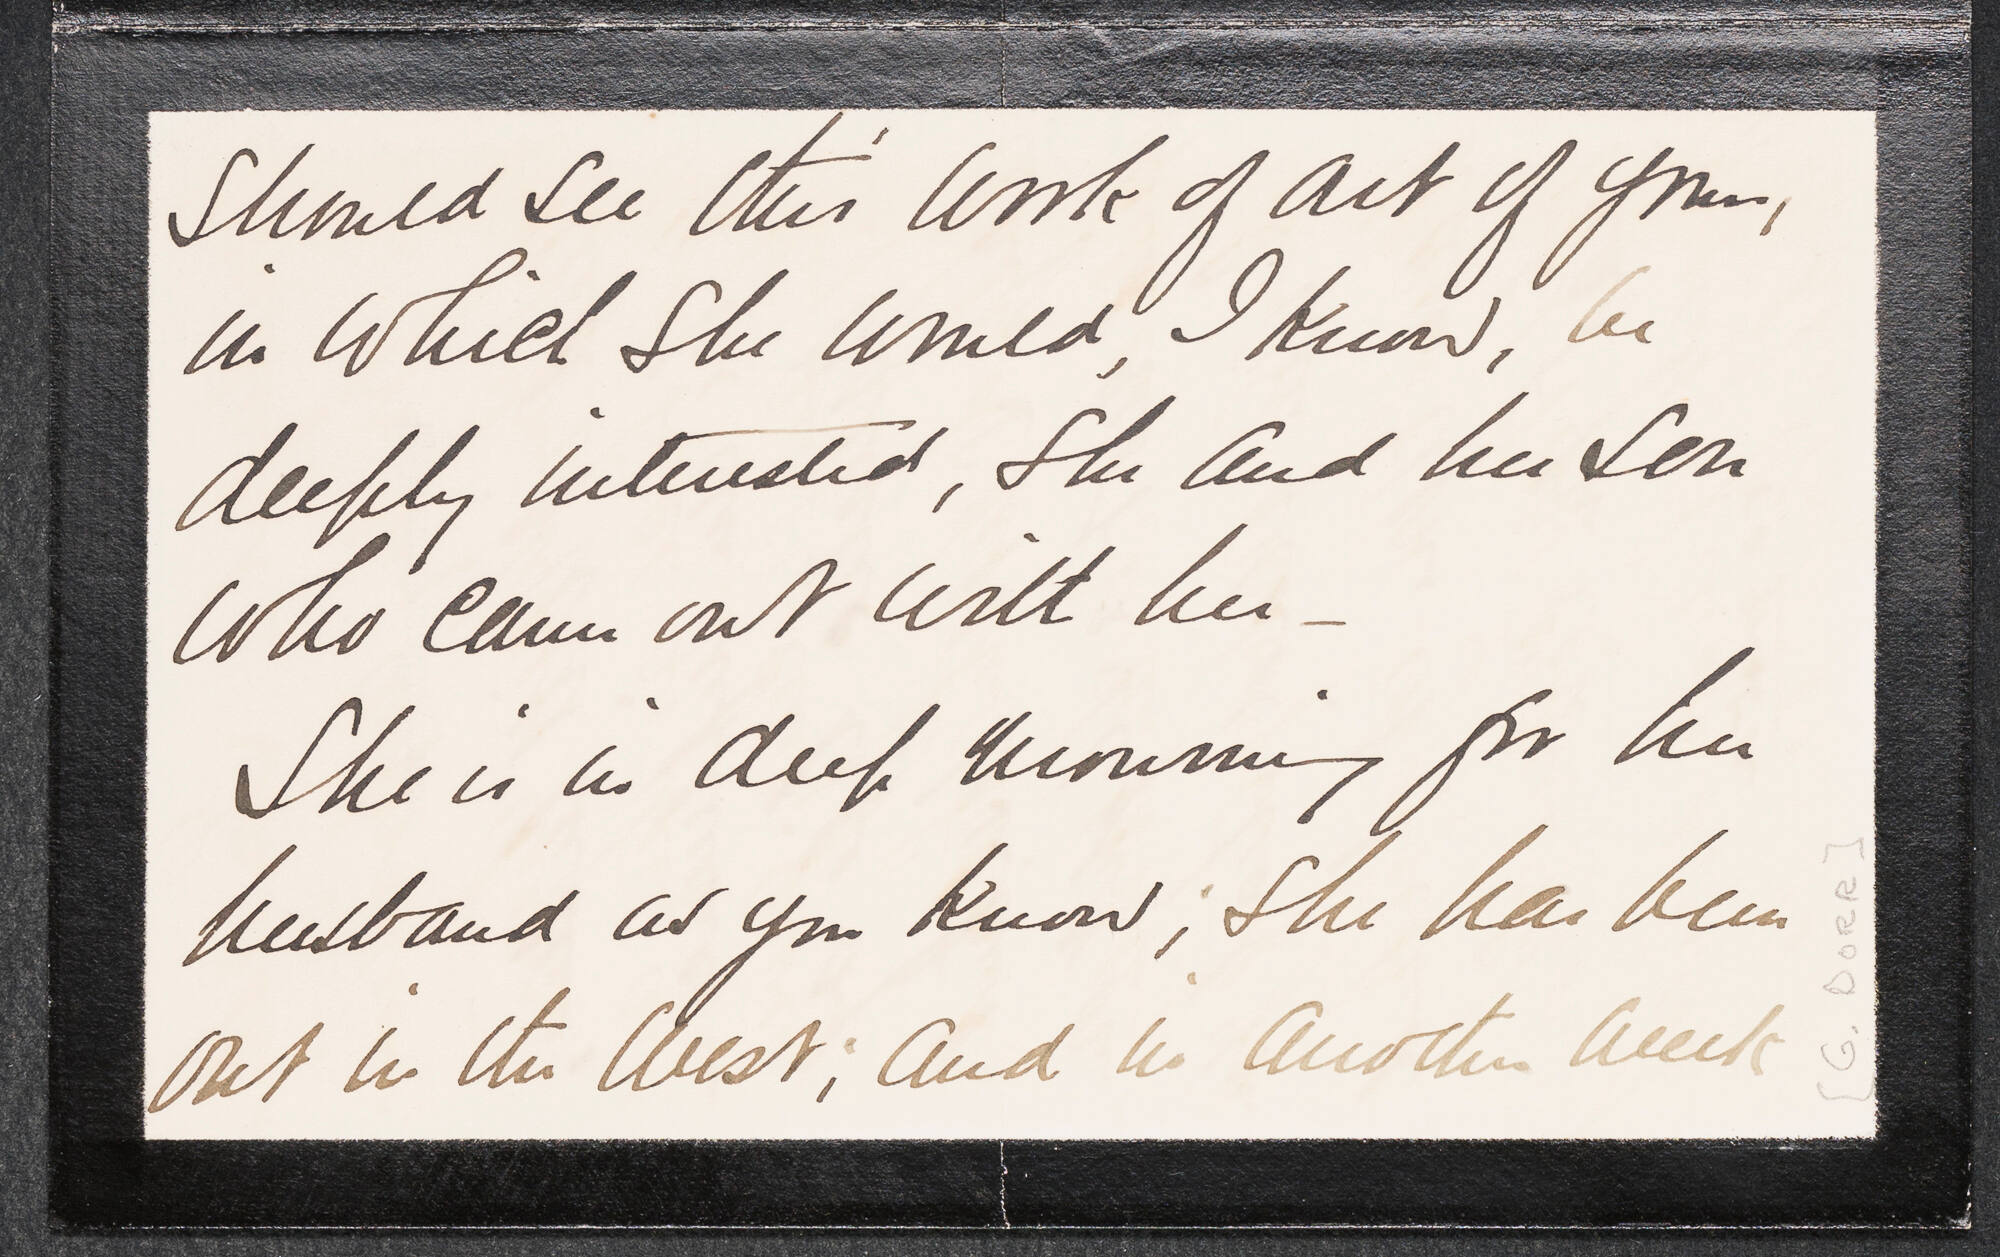 should see this work of art of yours,
in which she would, I know, be
deeply interested, she and her son
who came out with her –
She is in deep mourning for her
husband as you know; she has been
out in the West; and in another week
[G. DORR]